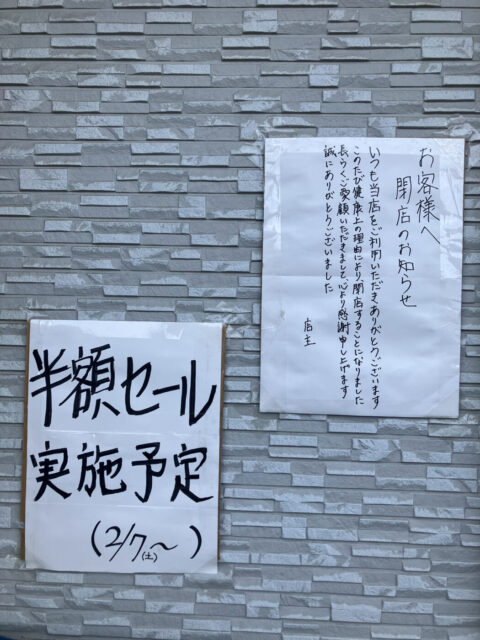 お客様へ
閉店のお知らせ
いつも当店をご利用いただきありがとうございます
このたび健康上の理由により、閉店することになりました
長らくご愛顧いただきまして、心より感謝申し上げます
誠にありがとうございました
店主
半額セール
実施予定
(2/7(土)〜 )